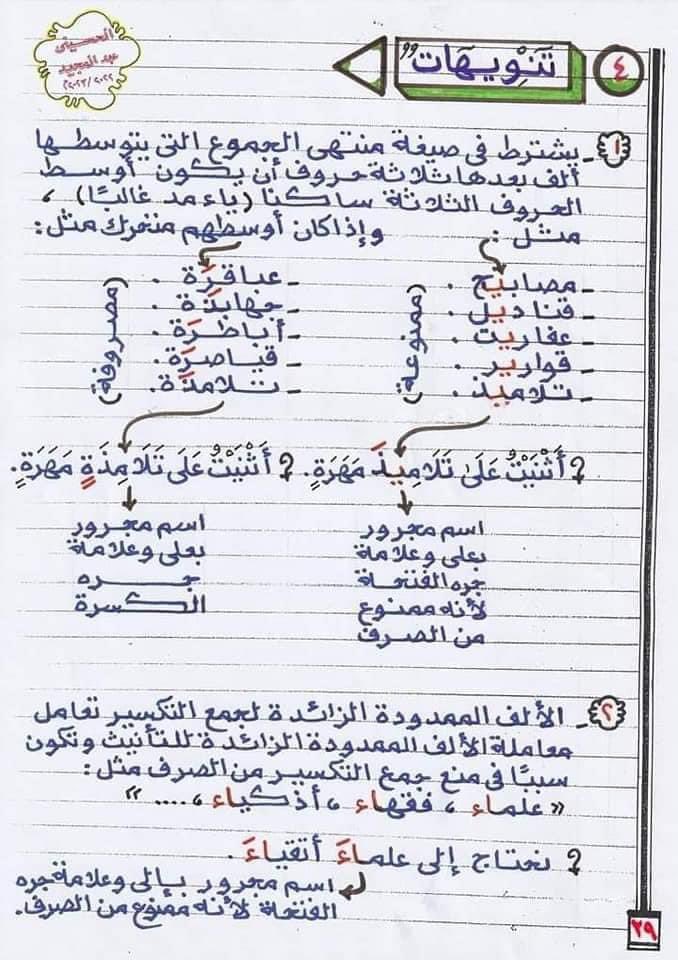 ٤
"تَنْوِيهَات"
الحسيني
عبد المجيد
٢٠٢٢/٢٠٢٣
١- يشترط في صيغة منتهى الجموع التي يتوسطها
ألف بعدها ثلاثة حروف أن يكون أوسط
الحروف الثلاثة ساكنا (ياء مد غالبًا) ،
مثل : وإذا كان أوسطهم متحرك مثل :
- مصابيح .
- قناديل .
- عفاريت .
- قوارير .
- تلاميذ .
(ممنوعة)
- عباقرَة .
- جهابذَة .
- أباطرَة .
- قياصرَة .
- تلامذَة .
(مصروفة)
؟ أَثْنَيْتُ عَلَى تَلَامِيذَ مَهَرَةٍ .
اسم مجرور
بعلى وعلامة
جره الفتحة
لأنه ممنوع
من الصرف
؟ أَثْنَيْتُ عَلَى تَلَامِذَةٍ مَهَرَةٍ .
اسم مجرور
بعلى وعلامة
جره
الكسرة
٢- الألف الممدودة الزائدة لجمع التكسير تعامل
معاملة الألف الممدودة الزائدة للتأنيث وتكون
سببًا في منع جمع التكسير من الصرف مثل :
« علماء ، فقهاء ، أذكياء ، .... »
؟ نحتاج إلى علماءَ أتقياءَ .
اسم مجرور بإلى وعلامة جره
الفتحة لأنه ممنوع من الصرف.
٢٩